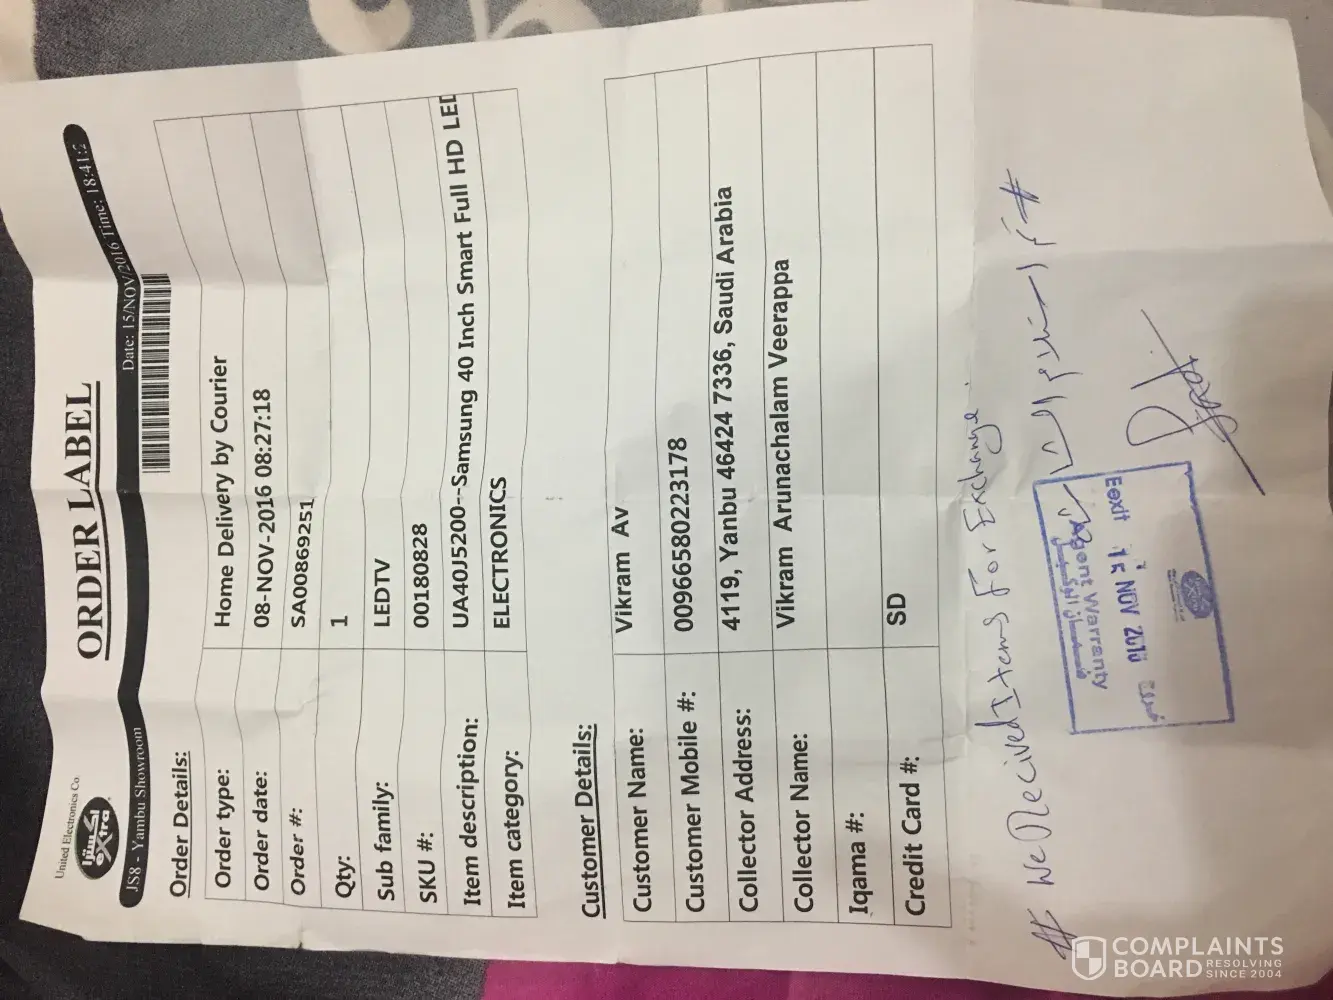 United Electronics Co.
اكسترا
eXtra
ORDER LABEL
JS8 - Yambu Showroom
Date: 15/NOV/2016 Time: 18:41:2
Order Details:
Order type: Home Delivery by Courier
Order date: 08-NOV-2016 08:27:18
Order #: SA00869251
Qty: 1
Sub family: LEDTV
SKU #: 00180828
Item description: UA40J5200--Samsung 40 Inch Smart Full HD LED
Item category: ELECTRONICS
Customer Details:
Customer Name: Vikram Av
Customer Mobile #: 00966580223178
Collector Address: 4119, Yanbu 46424 7336, Saudi Arabia
Collector Name: Vikram Arunachalam Veerappa
Iqama #:
Credit Card #: SD
# We Recived Items For Exchange.
Agent Warrenty
ضمان الوكيل
Eextra
NOV
COMPLAINTS
BOARD RESOLVING
SINCE 2004